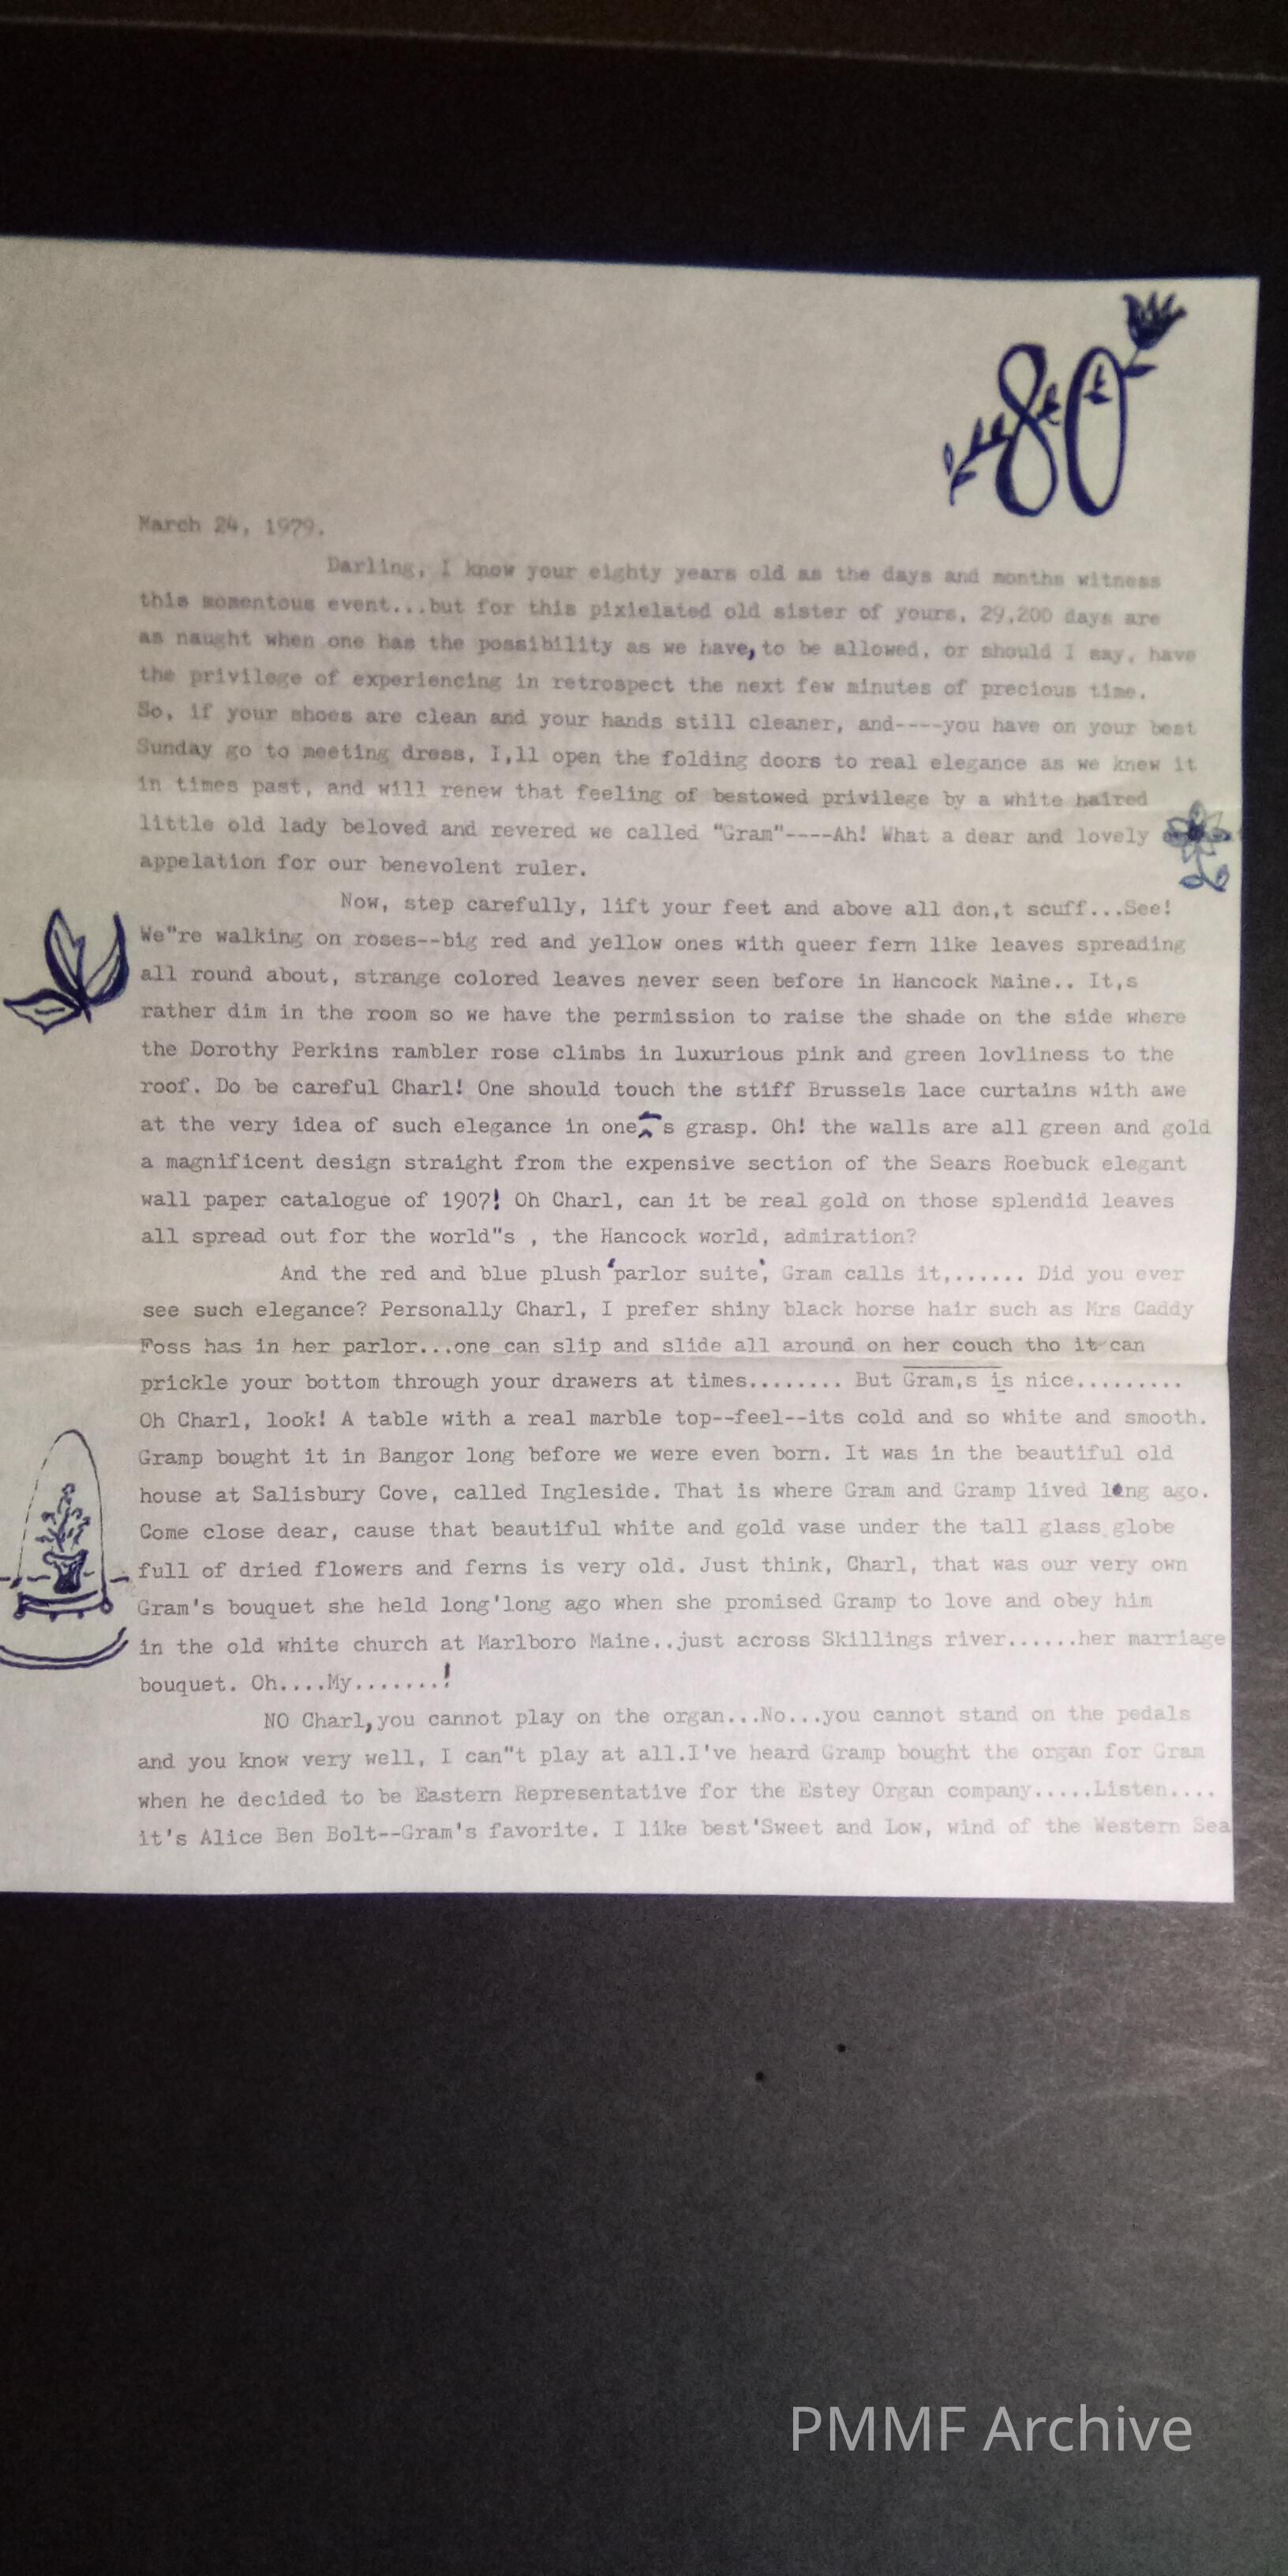 80
March 24, 1979.
Darling, I know your eighty years old as the days and months witness
this momentous event...but for this pixielated old sister of yours, 29,200 days are
as naught when one has the possibility as we have, to be allowed, or should I say, have
the privilege of experiencing in retrospect the next few minutes of precious time.
So, if your shoes are clean and your hands still cleaner, and----you have on your best
Sunday go to meeting dress, I,ll open the folding doors to real elegance as we knew it
in times past, and will renew that feeling of bestowed privilege by a white haired
little old lady beloved and revered we called "Gram"----Ah! What a dear and lovely
appelation for our benevolent ruler.
Now, step carefully, lift your feet and above all don,t scuff...See!
We"re walking on roses--big red and yellow ones with queer fern like leaves spreading
all round about, strange colored leaves never seen before in Hancock Maine.. It,s
rather dim in the room so we have the permission to raise the shade on the side where
the Dorothy Perkins rambler rose climbs in luxurious pink and green lovliness to the
roof. Do be careful Charl! One should touch the stiff Brussels lace curtains with awe
at the very idea of such elegance in one's grasp. Oh! the walls are all green and gold
a magnificent design straight from the expensive section of the Sears Roebuck elegant
wall paper catalogue of 1907! Oh Charl, can it be real gold on those splendid leaves
all spread out for the world"s , the Hancock world, admiration?
And the red and blue plush 'parlor suite', Gram calls it,...... Did you ever
see such elegance? Personally Charl, I prefer shiny black horse hair such as Mrs Caddy
Foss has in her parlor...one can slip and slide all around on her couch tho it can
prickle your bottom through your drawers at times........ But Gram,s is nice.........
Oh Charl, look! A table with a real marble top--feel--its cold and so white and smooth.
Gramp bought it in Bangor long before we were even born. It was in the beautiful old
house at Salisbury Cove, called Ingleside. That is where Gram and Gramp lived long ago.
Come close dear, cause that beautiful white and gold vase under the tall glass globe
full of dried flowers and ferns is very old. Just think, Charl, that was our very own
Gram's bouquet she held long'long ago when she promised Gramp to love and obey him
in the old white church at Marlboro Maine..just across Skillings river......her marriage
bouquet. Oh....My.......!
NO Charl, you cannot play on the organ...No...you cannot stand on the pedals
and you know very well, I can"t play at all.I've heard Gramp bought the organ for Gram
when he decided to be Eastern Representative for the Estey Organ company.....Listen....
it's Alice Ben Bolt--Gram's favorite. I like best'Sweet and Low, wind of the Western Sea
PMMF Archive